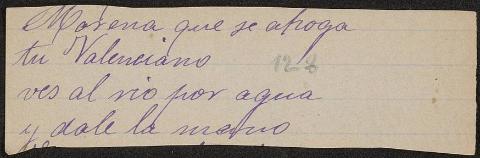 Morena que se ahoga
tu Valenciano
12-8
ves al rio por agua
y dale la mano